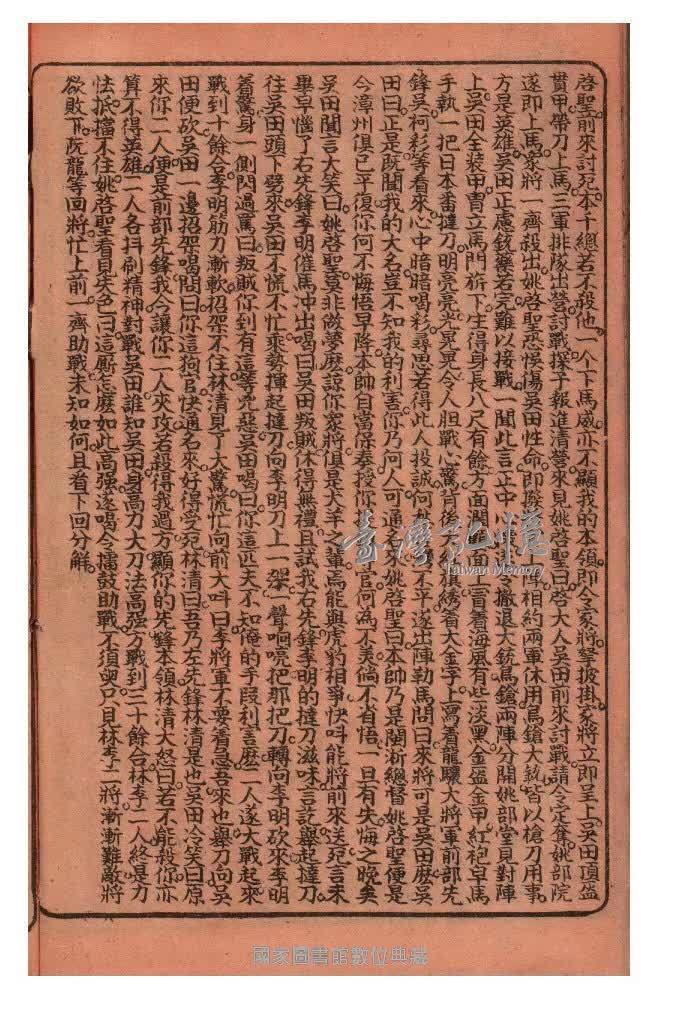 啓聖前來討死本千總若不殺他一个下馬威亦不顯我的本領即令家將拏披掛家將立即呈上吳田頂盔
貫甲帶刀上馬三軍排隊出營討戰探子報進清營來見姚啓聖曰啓大人吳田前來討戰請令定奪姚部院
遂即上馬衆將一齊殺出姚啓聖恐悞傷吳田性命即撥陣相約兩軍休用鳥鎗大砲皆以槍刀用事
方是英雄吳田正慮銃藥若完難以接戰一聞此言正中撤退大銃鳥鎗兩陣分開姚部堂見對陣
上吳田全裝甲冑立馬門旂下生得身長八尺有餘方面濶冒着海風有些淡黑金盔金甲紅袍皁馬
手執一把日本番撻刀明亮亮光晃晃令人胆戰心驚背後大紅旗綉着大金字上寫着龍驤大將軍前部先
鋒吳柯彩等看來心中暗暗喝彩尋思若得此人投誠何不平遂出陣勒馬問曰來將可是吳田麽吳
田曰正是既聞我的大名豈不知我的利害你乃何人可通名姚啓聖曰本帥乃是閩淅總督姚啓聖便是
今漳州俱已平復你何不悔悟早降本帥自當保奏授你官何為不美倘不省悟一旦有失悔之晚矣
吳田聞言大笑曰姚啓聖莫非做夢麽諒你家將俱是犬羊之輩焉能與虎豹相爭快叫能將前來送死言未
畢早惱了右先鋒李明催馬冲出喝曰吳田叛賊休得無禮且試我右先鋒李明的撻刀滋味言訖舉起撻刀
往吳田頭下劈來吳田不慌不忙乘勢揮起撻刀向李明刀上一架一聲响亮把那把刀轉向李明砍來李明
着驚身一側閃過罵曰叛賊你到有這等兇惡吳田喝曰你這匹夫不知俺的手叚利害麽二人遂大戰起來
戰到十餘合李明筋刀漸軟招架不住林清見了大驚慌忙向前大呌曰李將軍不要着急吾來也舉刀向吳
田便砍吳田一邊招架喝問曰你這狗官快通名來好得受死林清曰吾乃左先鋒林清是也吳田冷笑曰原
來你二人便是前部先鋒我今讓你二人夾攻若殺得我過方顯你的先鋒本領林清大怒曰若不能殺你亦
算不得英雄二人各抖刷精神對戰吳田誰知吳田身高刀大刀法高强方戰到三十餘合林李二人終是力
怯抵擋不住姚啓聖看見失色曰這厮怎麽如此高强遂喝令擂鼓助戰不須臾只見林李二將漸漸難敵將
欲敗下阮龍等回將忙上前一齊助戰未知如何且看下回分解
臺灣記憶
Taiwan Memory
國家圖書館數位典藏